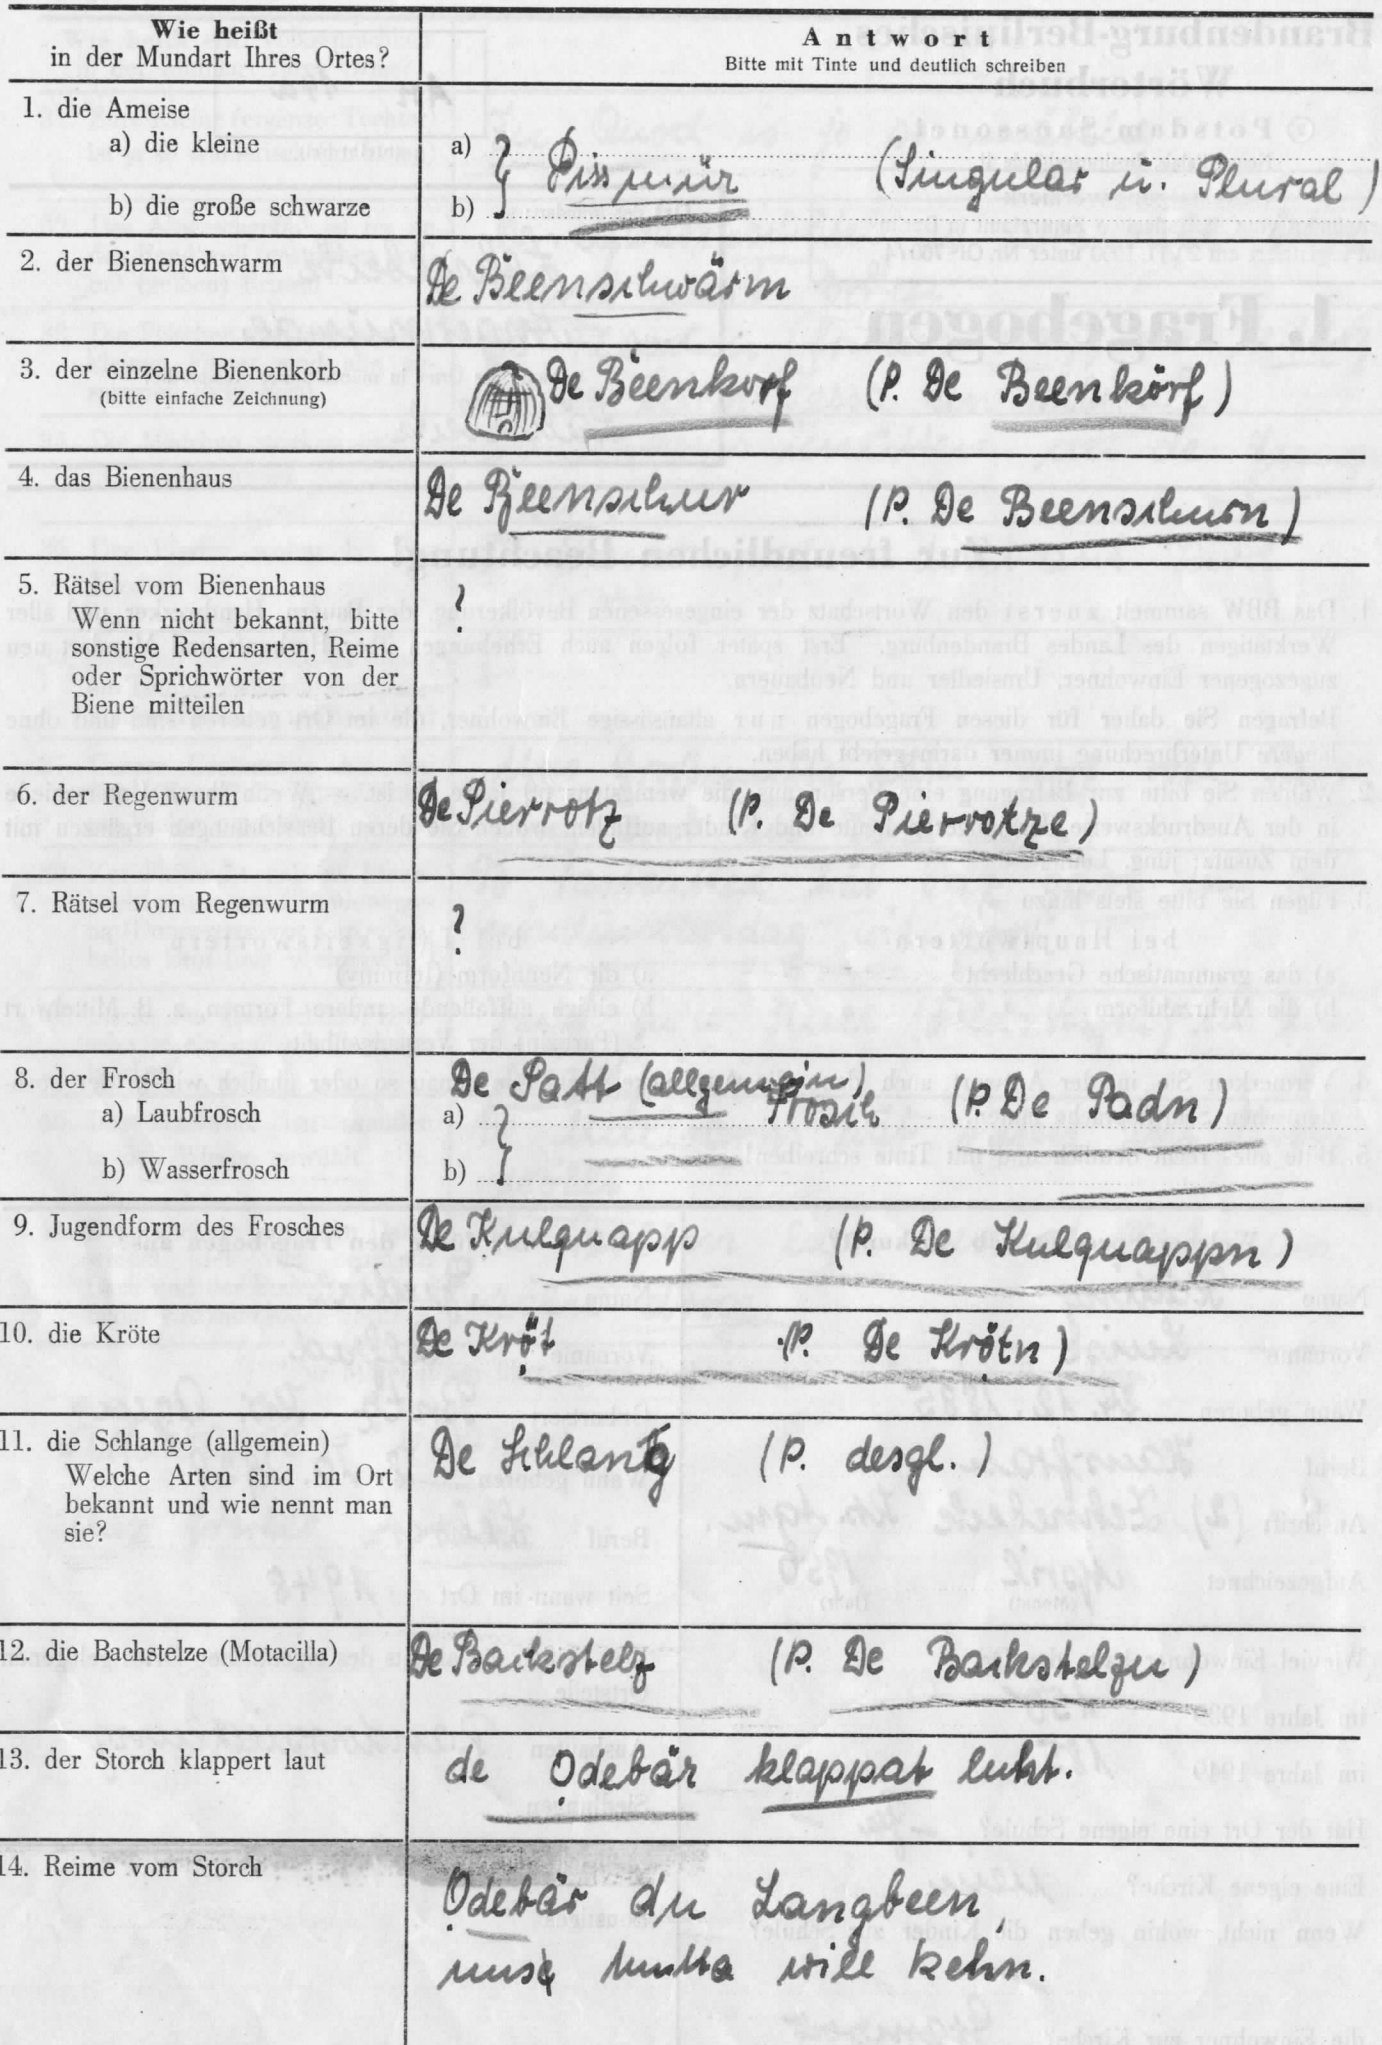 Wie heißt
in der Mundart Ihres Ortes?
Antwort
Bitte mit Tinte und deutlich schreiben
1. die Ameise
a) die kleine
a)
Pissmür (Singular u. Plural)
b) die große schwarze
b)
2. der Bienenschwarm
De Beenschwärm
3. der einzelne Bienenkorb
(bitte einfache Zeichnung)
De Beenkorf (P. De Beenkörf)
4. das Bienenhaus
De Beenschur (P. De Beenschurn)
5. Rätsel vom Bienenhaus
Wenn nicht bekannt, bitte
sonstige Redensarten, Reime
oder Sprichwörter von der
Biene mitteilen
?
6. der Regenwurm
De Pierrotz (P. De Pierrotze)
7. Rätsel vom Regenwurm
?
8. der Frosch
De Patt (allgemein)
a) Laubfrosch
a) Frosch (P. De Padn)
b) Wasserfrosch
b)
9. Jugendform des Frosches
De Kulquapp (P. De Kulquappn)
10. die Kröte
De Kröt (P. De Krötn)
11. die Schlange (allgemein)
Welche Arten sind im Ort
bekannt und wie nennt man
sie?
De (P. desgl.)
12. die Bachstelze (Motacilla)
De Backstelz (P. De Backstelzn)
13. der Storch klappert laut
de Odebär klappat luht.
14. Reime vom Storch
Odebär du Langbeen,
will kehn.